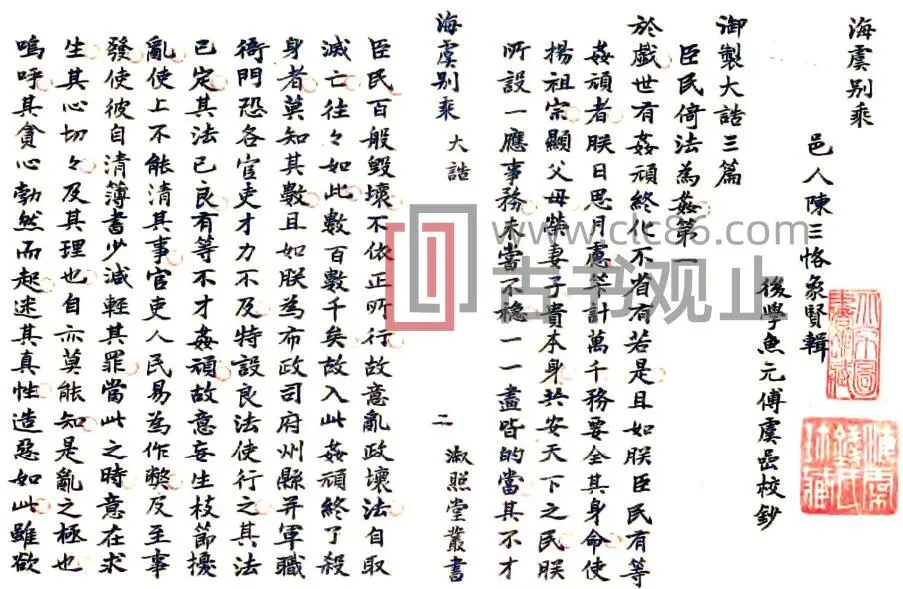 海虞别乘
邑人陳三恪象賢輯
後學魚元傅虞嵒校鈔
御製大誥三篇
臣民倚法為姦第一
於戲世有姦頑終化不省有若是且如朕臣民有等
姦頑者朕日思月慮筭計萬千務要全其身命使
揚祖宗顯父母榮妻子貴本身共安天下之民朕
所設一應事務未嘗不穩一一盡皆的當其不才
海虞别乘 大誥 二 淑照堂叢書
臣民百般毀壞不依正所行故意亂政壞法自取
滅亡往々如此數百數千矣故入此姦頑終了殺
身者莫知其數且如朕為布政司府州縣并軍職
衙門恐各官吏才力不及特設良法使行之其法
已定其法已良有等不才姦頑故意妄生枝節擾
亂使上不能清其事官吏人民易為作弊及至事
發使彼自清薄書少減輕其罪當此之時意在求
生其心切々及其理也自亦莫能知是亂之極也
嗚呼其貪心勃然而起迷其真性造惡如此雖欲
www.clc86.com
古书观止